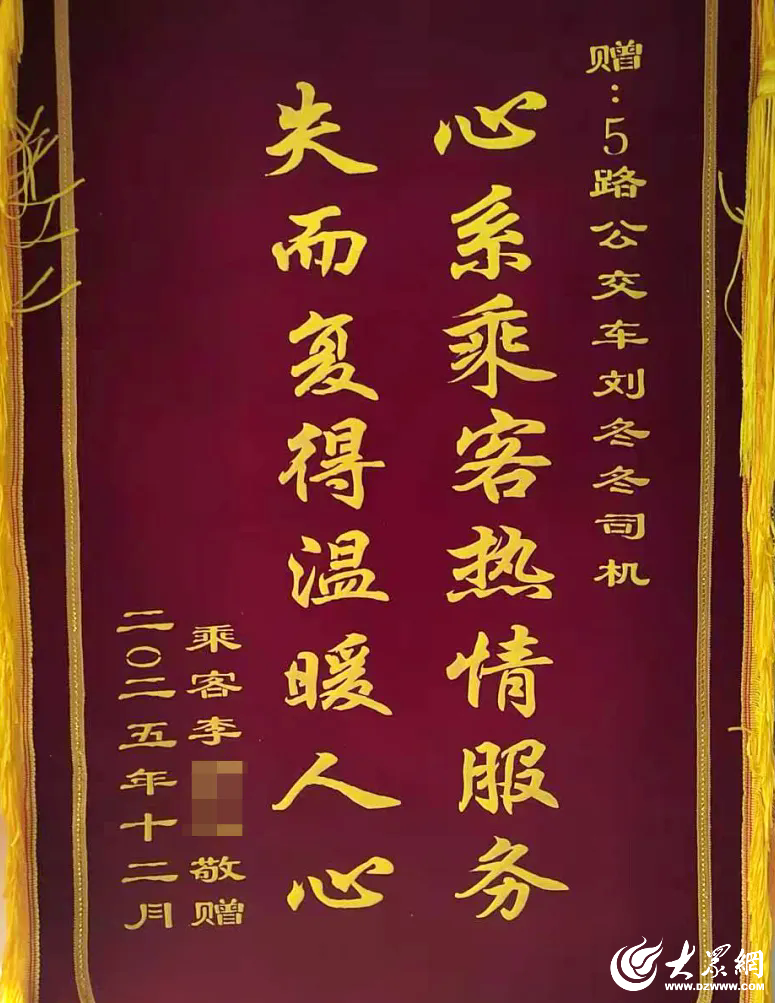 赠：5路公交车刘冬冬司机
心系乘客热情服务
失而复得温暖人心
乘客李 敬赠
二〇二五年十二月
大眾網
www.dzwww.com